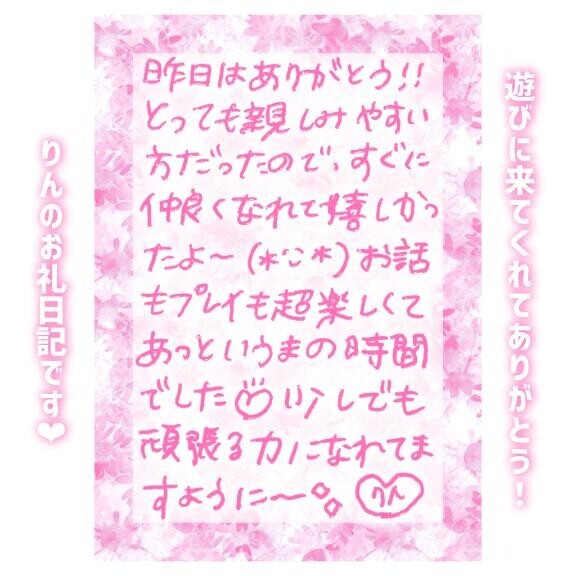 遊びに来てくれてありがとう!
昨日はありがとう!!
とっても親しみやすい
方だったので、すぐに
仲良くなれて嬉しかっ
たよ〜(*ˊᵕˋ*)お話
もプレイも超楽しくて
あっというまの時間
でした♡少しでも
頑張る力になれてま
すように〜
りん
りんのお礼日記です❤